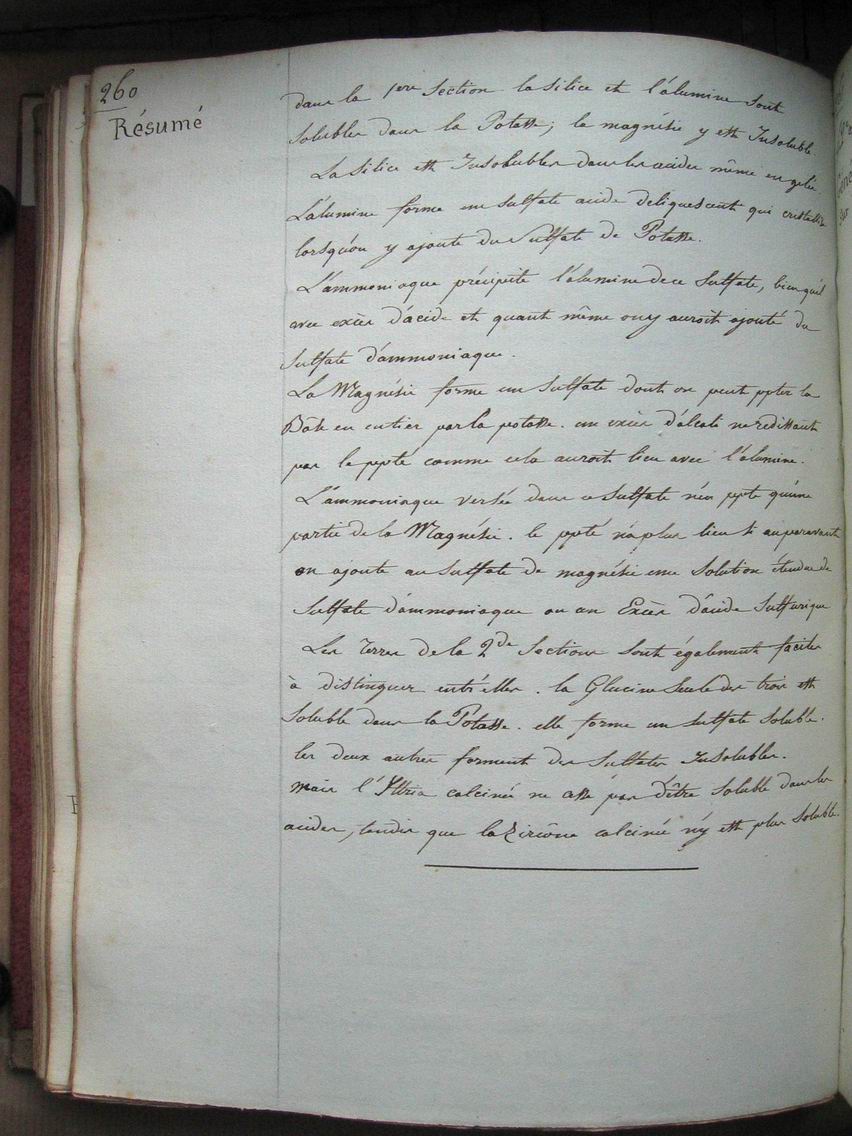 260
Résumé
dans la 1ere Section la silice et l'alumine sont
solubles dans la Potasse; la magnésie y est Insoluble.
La silice est Insolubles dans les acides même en gelée
L'alumine forme un sulfate acide deliquescent qui cristallise
lorsqu'on y ajoute du Sulfate de Potasse.
L'ammoniaque précipite l'alumine de ce Sulfate, bien qu'il
avec excès d'acide et quant même on y auroit ajouté du
Sulfate d'ammoniaque.
La Magnésie forme un Sulfate dont on peut ppter la
Bâse en entier par la potasse. un excès d'alcali ne redissout
pas le ppté comme cela auroit lieu avec l'alumine.
L'ammoniaque versée dans ce Sulfate n'en ppte qu'une
partie de la Magnésie. le ppté n'a plus lieu Si auparavant
on ajoute au Sulfate de magnésie une Solution étendue de
Sulfate d'ammoniaque ou un Excès d'acide Sulfurique
Les Terres de la 2de Sections sont également faciles
à distinguer entr'elles. la Glucine Seule des trois est
Soluble dans la Potasse. elle forme un sulfate soluble.
les deux autres forment des Sulfates Insolubles.
mais l'Ittria calcinée ne cesse pas d'être Soluble dans les
acides, tandis que la Zircône calcinée n'y est plus Soluble.